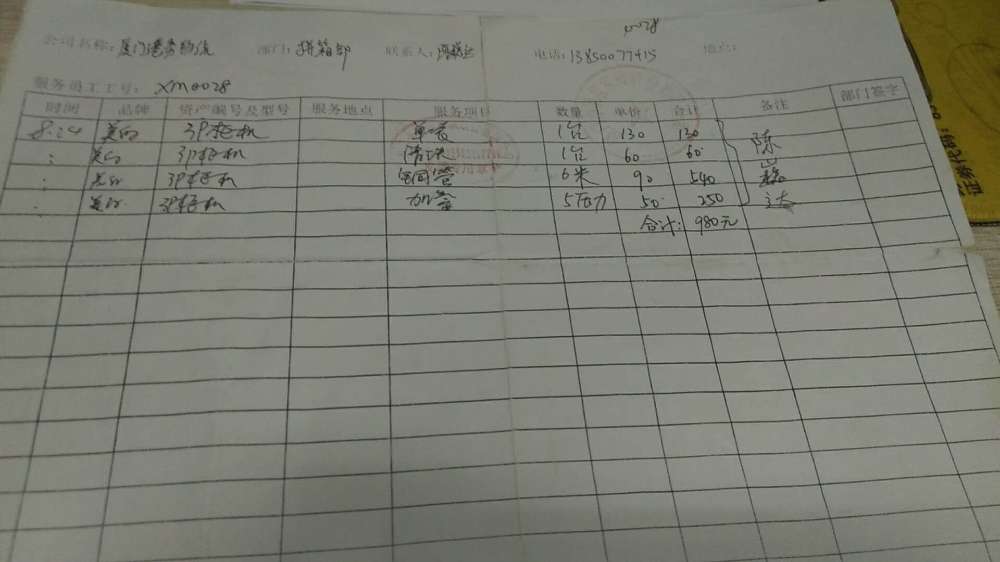 0028
公司名称: 厦门港务物流 部门: 拼箱部 联系人: 电话: 13850077415 地点:
服务员工工号: XM0028
时间 品牌 资产编号及型号 服务地点 服务项目 数量 单价 合计 备注 部门签字
8.24 美的 3P柜机 单装 1台 130 130 陈
: 美的 3P柜机 清洗 1台 60 60
: 美的 3P柜机 铜管 6米 90 540
: 美的 3P柜机 加氟 5压力 50 250 达
合计: 980元